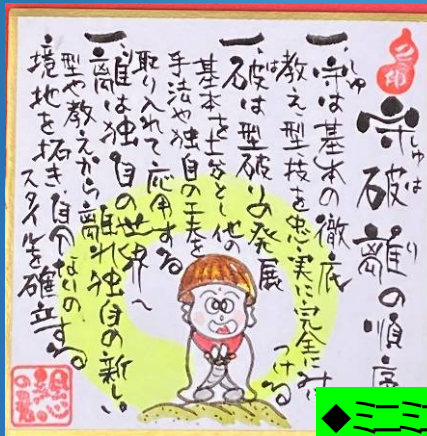 守破離の順序
しゅ は り
一、守は基本の徹底
しゅ
教え、型、技を忠実に完全に
つける
一、破は型破りの発展
は
基本を土台とし他の
手法や独自の工夫を
取り入れて応用する
一、離は独自の世界へ
型や教えから離れ独自の新しい
境地を拓き、自分なりの
スタイルを確立する